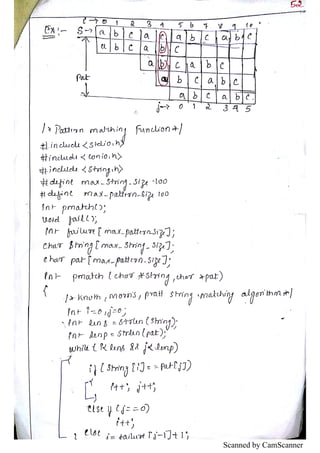 52
Ex:- i→ 0 1 2 3 4 5 6 7 8 9 10
S→ a b c a c a b c a b c
a b c a b c
a b c a b c
a b c a b c
a b c a b c
Pat
j→ 0 1 2 3 4 5
/* Pattern matching Function */
#include <stdio.h>
#include <conio.h>
#include <string.h>
#define max_string_size 100
#define max_pattern_size 100
int pmatch();
void fail();
int failure [max_pattern_size];
char string [max_string_size];
char pat [max_pattern_size];
int pmatch (char *string, char *pat)
{
/* Knuth, morris, pratt string matching algorithm */
int i=0, j=0;
int lens = strlen (string);
int lenp = strlen (pat);
while (i< lens && j< lenp)
{
if (string [i] == pat[j])
{
i++; j++;
}
else if (j==0)
i++;
else j= failure [j-1]+1;
Scanned by CamScanner